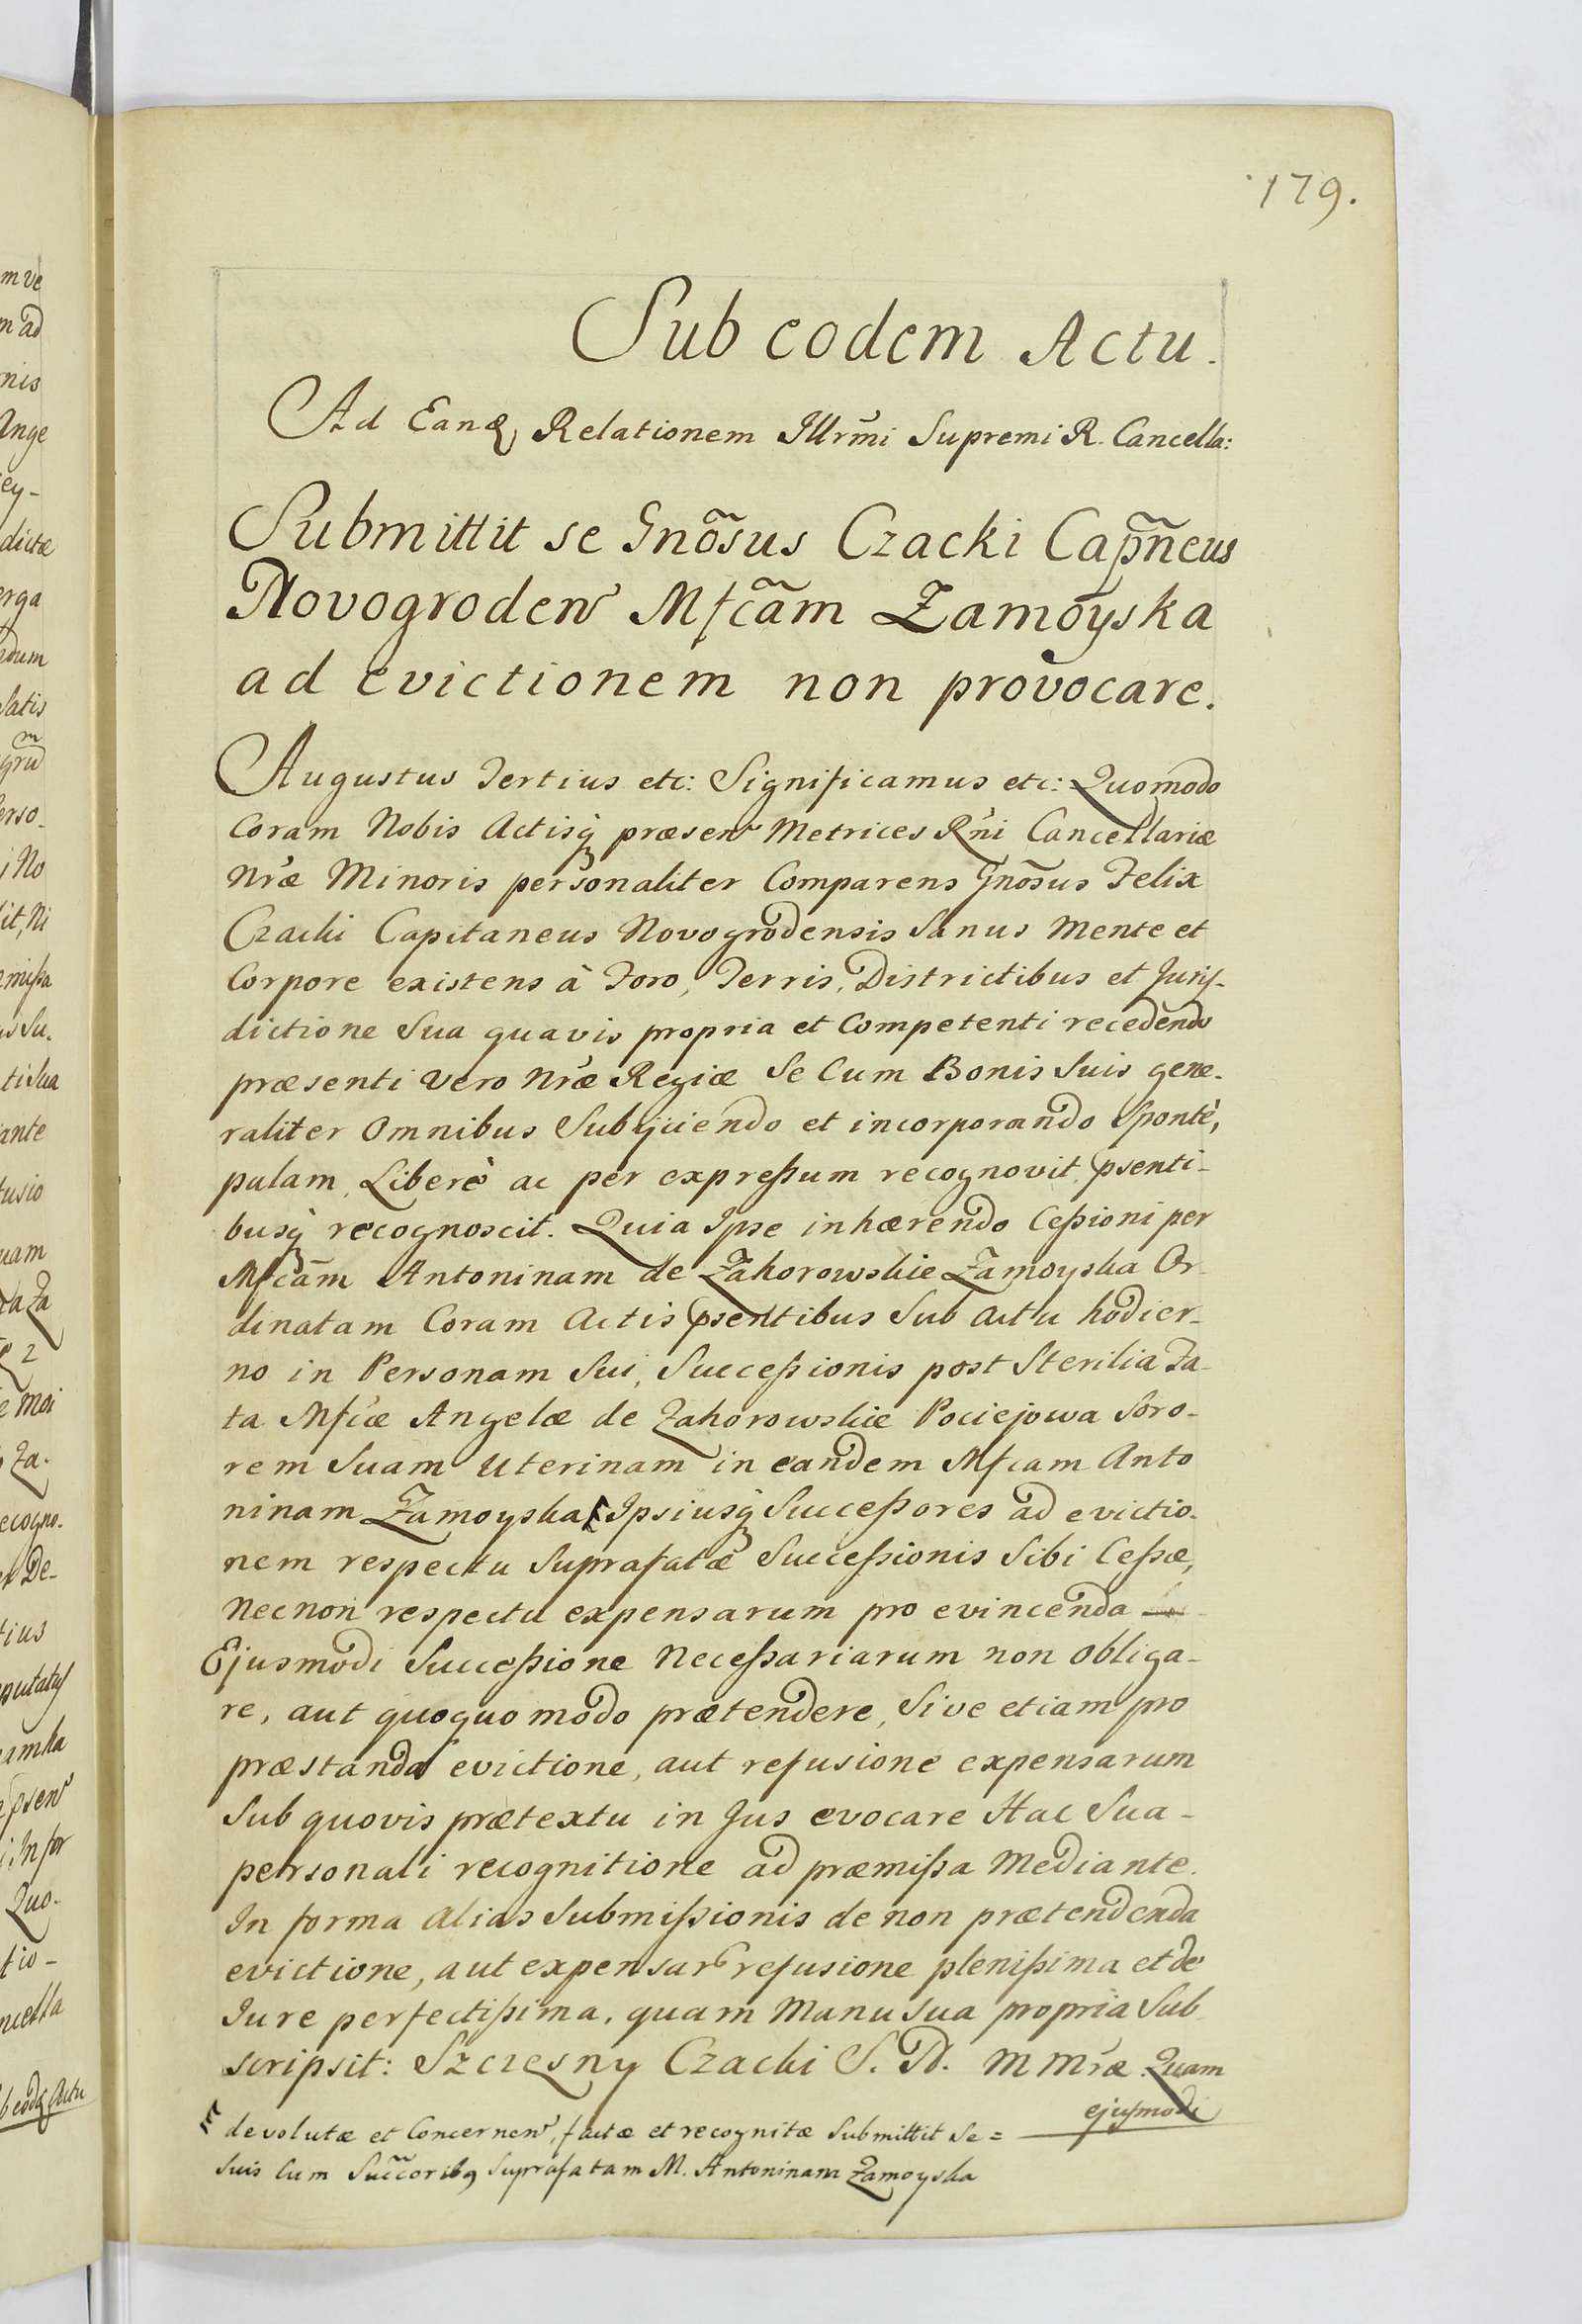 179.
Sub eodem Actu.
Ad Eandꝫ Relationem Illrm̃i Supremi R. Cancella:
Submittit se Gnõsus Czacki Cap̃ñeus
Novogroden̄ Mfcãm Zamoyska
ad evictionem non provocare.
Augustus Tertius etc: Significamus etc: Quomodo
Coram Nobis Actisq̀ præsen̄ Metrices Rñi Cancellariæ
Nr̃æ Minoris personaliter Comparens Gnõsus Felix
Czacki Capitaneus Novogrodensis Sanus Mente et
Corpore existens à Foro, Terris, Districtibus et Juris-
dictione Sua quavis propria et Competenti recedendo
præsenti vero Nr̃æ Regiæ Se Cum Bonis Suis gene-
raliter Omnibus Subijciendo et incorporando Spontè,
palam, Liberè ac per expreßum recognovit, p̃senti-
busq̀ recognoscit. Quia Ipse inhærendo Ceßioni per
Mfcãm Antoninam de Zahorowskie Zamoyska Or-
dinatam Coram Actis p̃sentibus Sub actu hodier-
no in Personam Sui, Succeßionis post Sterilia Fa-
ta Mfcæ Angelæ de Zahorowskie Pociejowa Soro-
rem Suam Uterinam in eandem Mfcam Anto
ninam Zamoyska Ipsiusq̀ Succeßores ad evictio-
nem respectu Suprafatæ Succeßionis Sibi Ceßæ,
Necnon respectu expensarum pro evincenda
Ejusmodi Succeßione Neceßariarum non obliga-
re, aut quoquo modo prætendere, Sive etiam pro
præstanda evictione, aut refusione expensarum
Sub quovis prætextu in Jus evocare Hac Sua-
personali recognitione ad præmißa Mediante.
In forma alias Submißionis de non prætendenda
evictione, aut expensar̃ refusione plenißima et de
Iure perfectißima, quam Manu Sua propria Sub
scripsit: Szczęsny Czacki S. N. M Mr̃æ. Quam
ejusmodi
devolutæ et Concernen̄, factæ et recognitæ Submittit Se =
suis Cum Succ̃oribꝫ Suprafatam M. Antoninam Zamoyska